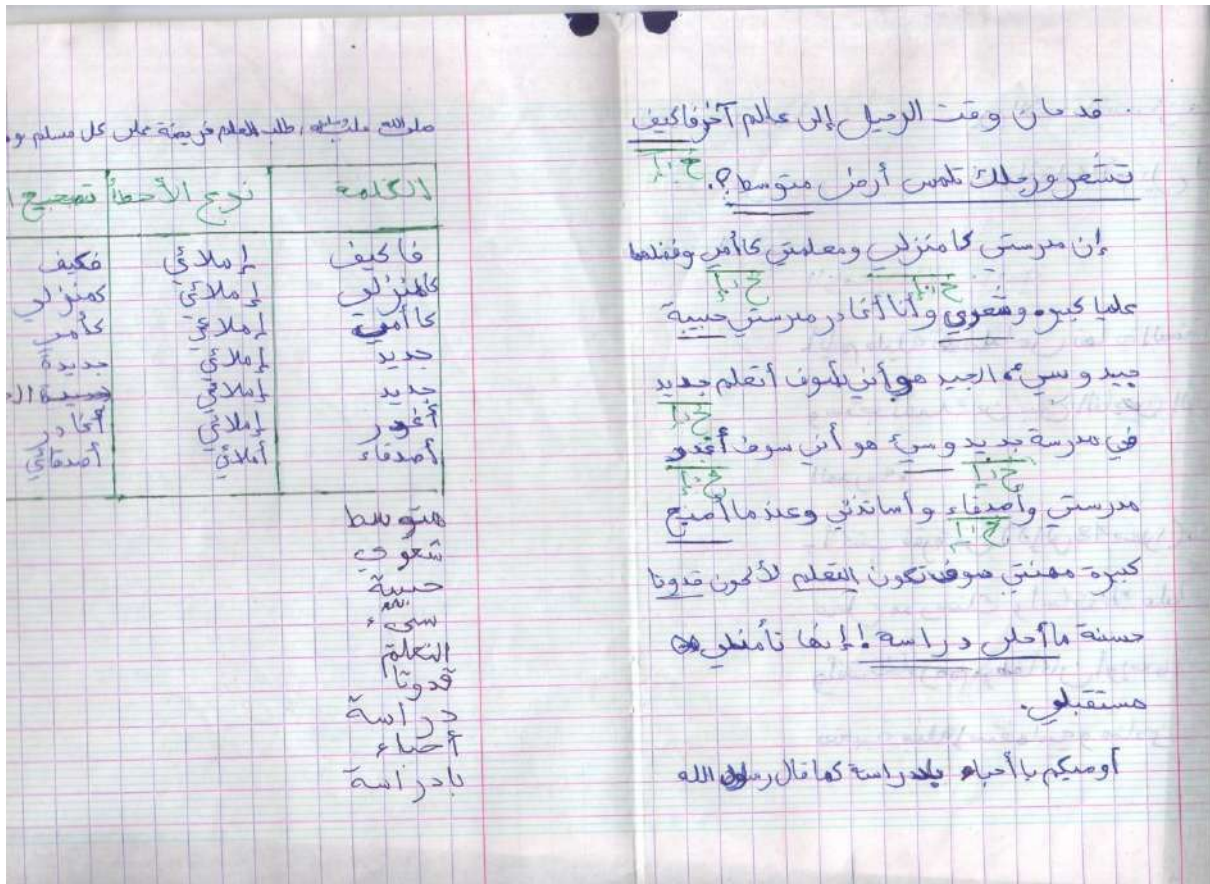 قد حان وقت الرحيل إلى عالم آخر فاكيف
خ.إ
تشعر ورجلك تلمس أرض متوسط؟.
إن مدرستي كامنزلي ومعلمتي كاأمي وفضلهما
خ.إ خ.إ
عليا كبير وشعوري وأنا أغادر مدرستي حبيبة
جيد وسيء، الجيد هو أني سوف أتعلم جديد
خ.إ
في مدرسة جديد وسيئ هو أني سوف أغدو
خ.إ خ.إ
مدرستي وأصدقاء وأساتذتي وعندما أصبح
خ.إ
كبيرة مهنتي سوف تكون التعلم لأكون قدوتا
حسنة ما أحلى دراسة! إنها تأمنلي
مستقبلي.
أوصيكم يا أحباء بادراسة كما قال رسول الله
صلى الله عليه وسلم، طلب العلم فريضة على كل مسلم
الكلمة نوع الأخطأ تصحيح
فاكيف إملائي فكيف
كامنزلي إملائي كمنزلي
كاأمي إملائي كأمي
جديد إملائي جديدة
جديد إملائي
أغدر إملائي أغادر
أصدقاء أملائي أصدقائي
متوسط
شعوري
حبيبة
سيء
التعلم
قدوتا
دراسة
أحباء
بادراسة